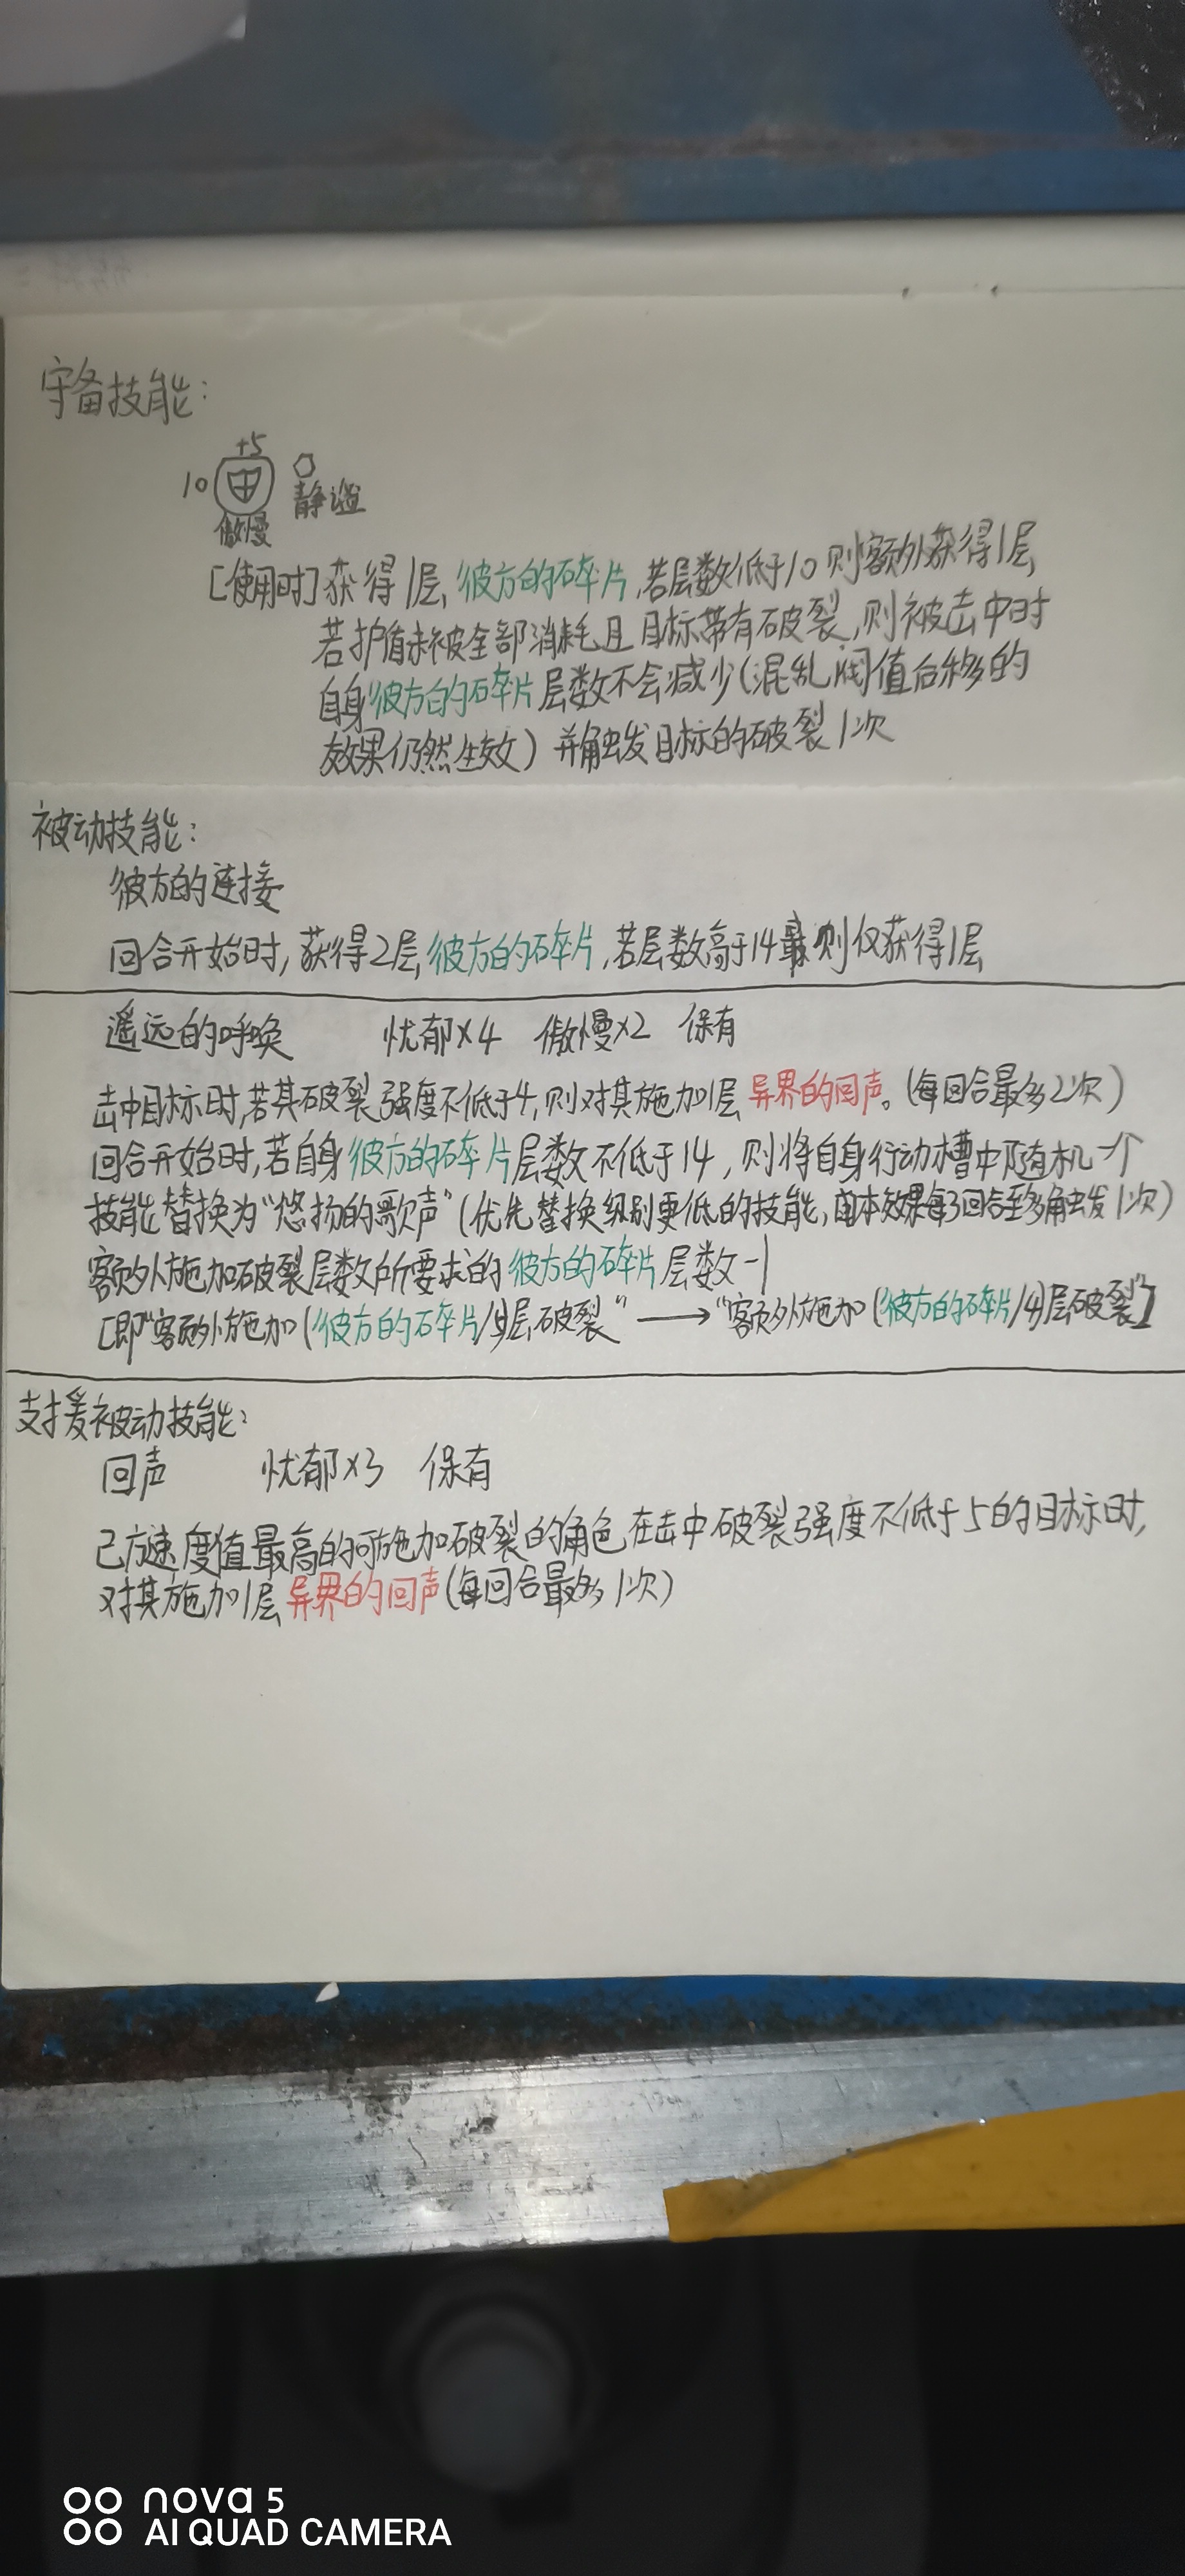 守备技能:
+5
10
静谧
傲慢
[使用时] 获得1层彼方的碎片,若层数低于10则额外获得1层,
若护盾未被全部消耗且目标带有破裂,则被击中时
自身彼方的碎片层数不会减少(混乱阀值后移的
效果仍然生效)并触发目标的破裂1次
被动技能:
彼方的连接
回合开始时,获得2层彼方的碎片,若层数高于14 则仅获得1层
遥远的呼唤 忧郁×4 傲慢×2 保有
击中目标时,若其破裂强度不低于4,则对其施加1层异界的回声。(每回合最多2次)
回合开始时,若自身彼方的碎片层数不低于14,则将自身行动槽中随机一个
技能替换为"悠扬的歌声"(优先替换级别更低的技能,本效果每3回合至多触发1次)
额外施加破裂层数所要求的彼方的碎片层数-1
[即"额外施加(彼方的碎片/)层破裂"→"额外施加(彼方的碎片/4)层破裂"]
支援被动技能:
回声 忧郁×3 保有
己方速度值最高的可施加破裂的角色在击中破裂强度不低于5的目标时,
对其施加1层异界的回声(每回合最多1次)
nova 5
AI QUAD CAMERA